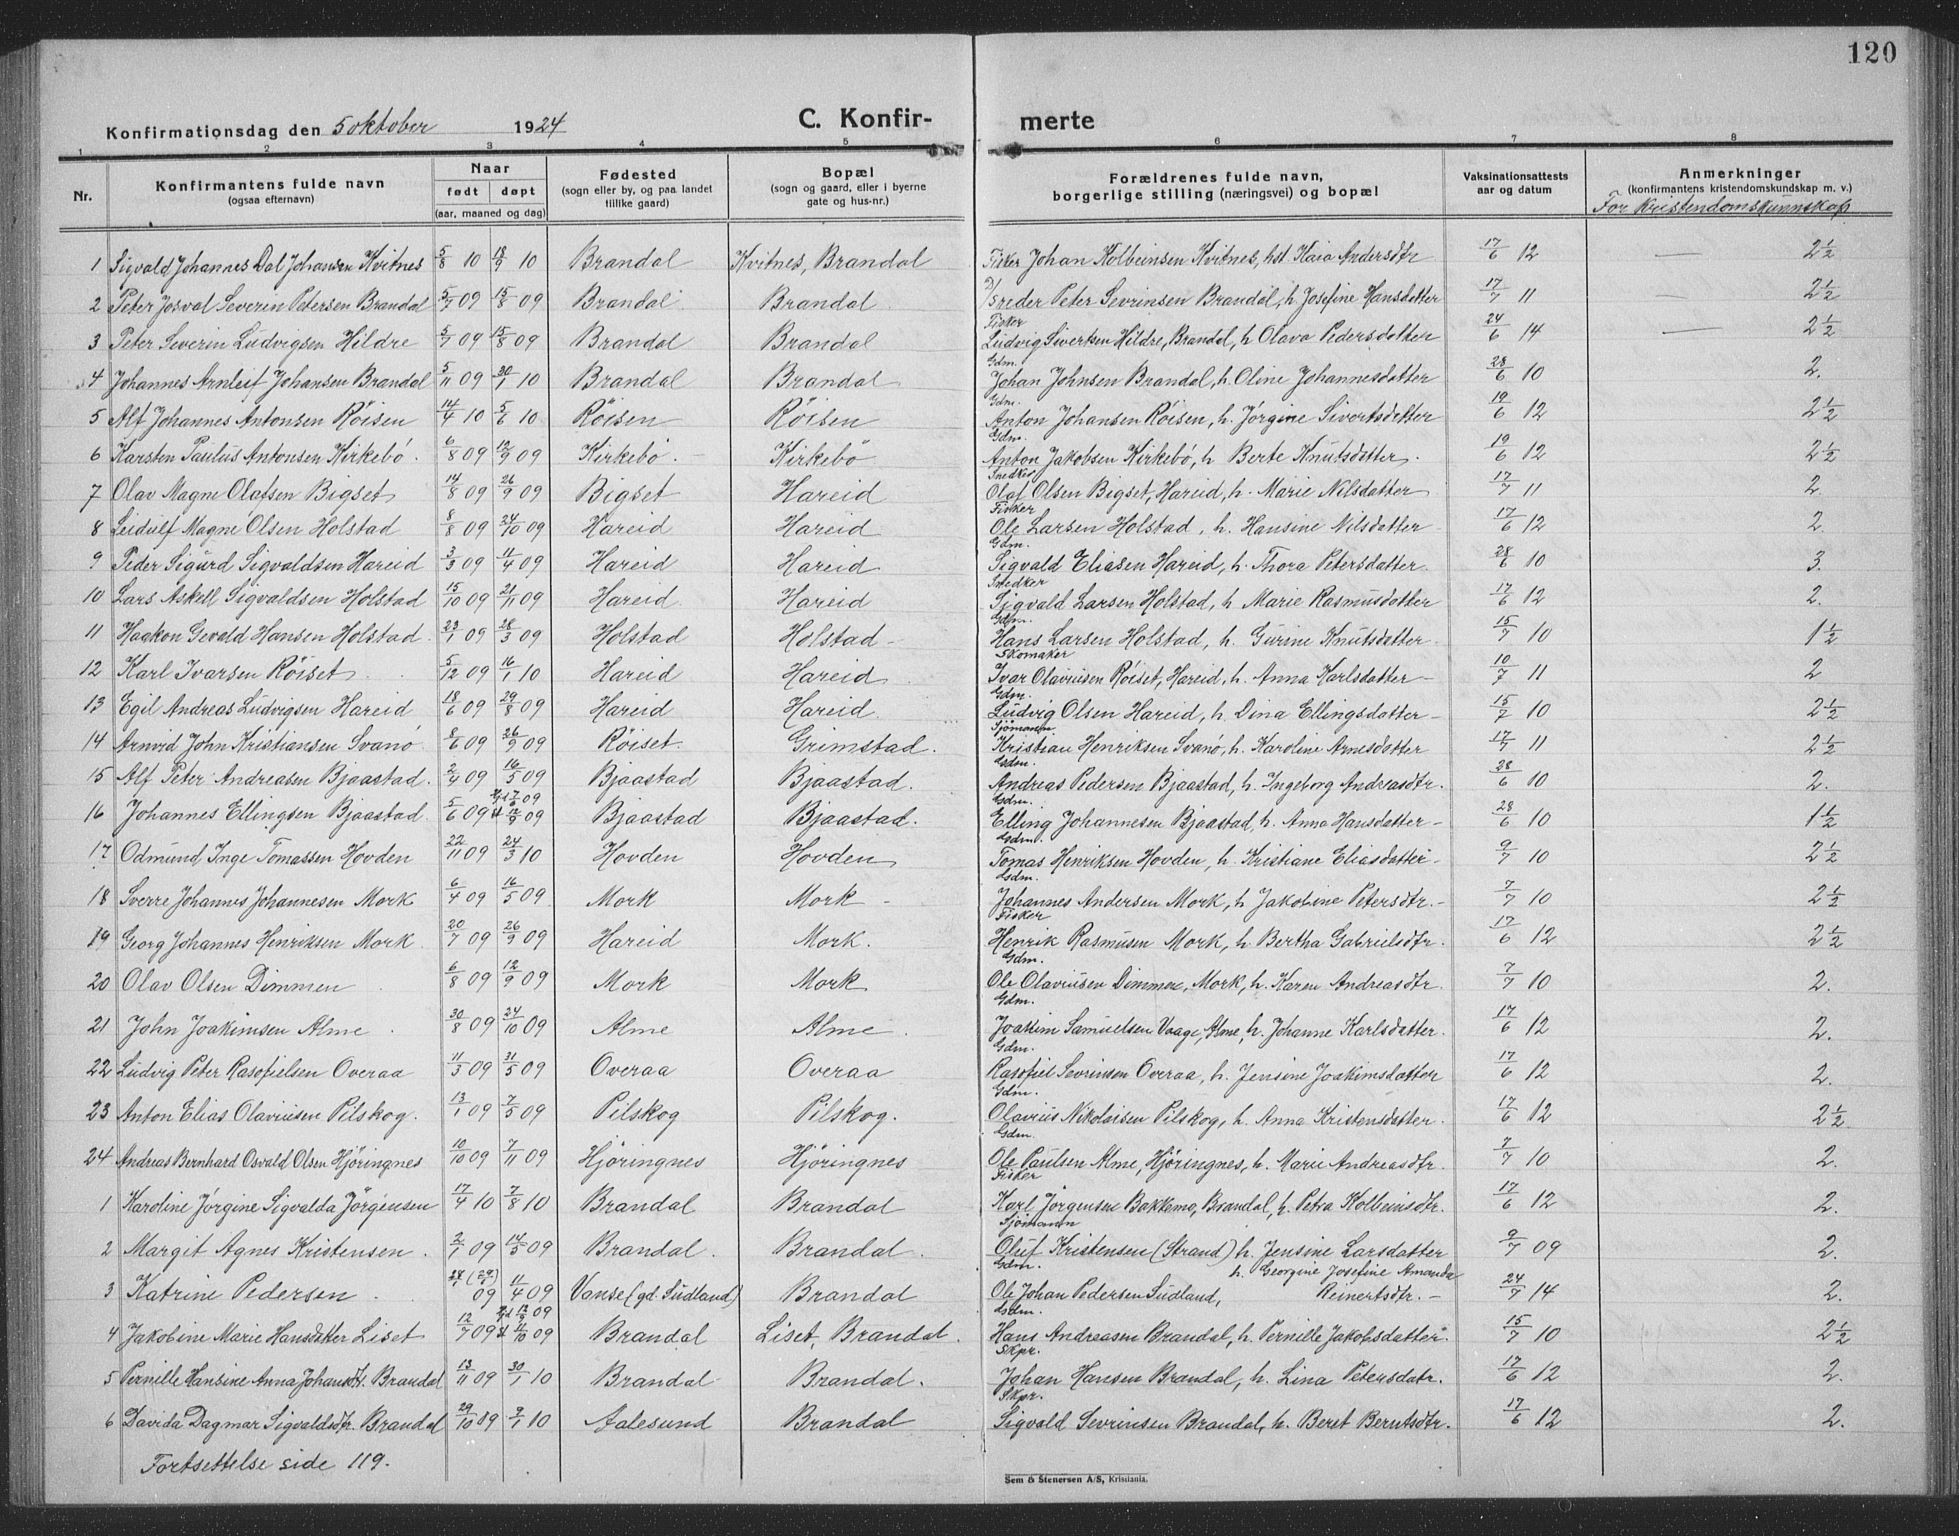 120
Konfirmationsdag den 5 oktober 1924 C. Konfir- merte
1 2 3 4 5 6 7 8
Nr. Konfirmantens fulde navn (ogsaa efternavn) Naar født døpt (aar, maaned og dag) Fødested (sogn eller by, og paa landet tillike gaard) Bopæl (sogn og gaard, eller i byerne gate og hus-nr.) Forældrenes fulde navn, borgerlige stilling (næringsvei) og bopæl Vaksinationsattests aar og datum Anmerkninger (konfirmantens kristendomskundskap m. v.)
For kristendomskunnskap
1 Sigvald Johannes Dal Johansen Kvitnes 5/8 10 18/9 10 Brandal Kvitnes, Brandal Fisker Johan Kolbeinsen Kvitnes, hst. Kaia Andersdtr 17/6 12 — 2 1/2
2 Peter Josval Severin Petersen Brandal 5/7 09 15/8 09 Brandal Brandal Peter Sevrinsen Brandal, h. Josefine Hansdatter 17/7 11 — 2 1/2
3 Peter Severin Ludvigsen Hildre 5/7 09 15/8 09 Brandal Brandal Fisker Ludvig Sivertsen Hildre, Brandal, h Olava Pedersdatter 24/6 14 — 2 1/2
4 Johannes Arnleif Johansen Brandal 5/11 09 30/1 10 Brandal Brandal Gdm. Johan Johnsen Brandal, h. Oline Johannesdatter 28/6 10 2.
5 Alf Johannes Antonsen Röisen 14/4 10 5/6 10 Röisen Röisen Gdm. Anton Johansen Röisen, h. Jörgine Sivertsdatter 19/6 12 2 1/2
6 Karsten Paulus Antonsen Kirkebö. 6/8 09 12/9 09 Kirkebö. Kirkebö Gdm. Anton Jakobsen Kirkebö, h Berte Knutsdatter. 19/6 12 2 1/2
7 Olav Magne Olafsen Bigset 14/8 09 26/9 09 Bigset Hareid Snedker Olaf Olsen Bigset, Hareid, h. Marie Nilsdatter 17/7 11 2.
8 Leidulf Magne Olsen Holstad 8/8 09 24/10 09 Hareid Hareid Fisker Ole Larsen Holstad, h. Hansine Nilsdatter 17/6 12 2.
9 Peder Sigurd Sigvaldsen Hareid 3/3 09 11/4 09 Hareid Hareid Gdm. Sigvald Eliasen Hareid, h. Thora Petersdatter. 28/6 10 3.
10 Lars Askell Sigvaldsen Holstad 15/10 09 21/11 09 Hareid Hareid Snedker Sigvald Larsen Holstad, h Marie Rasmusdatter 17/6 12 2.
11 Haakon Gevald Hansen Holstad. 23/1 09 28/3 09 Holstad Holstad Gdm. Hans Larsen Holstad, h. Gurine Knutsdatter 15/7 10 1 1/2
12 Karl Ivarsen Röiset 5/12 09 16/1 10 Hareid Hareid Skomaker Ivar Olavsen Röiset, Hareid, h. Anna Karlsdatter 10/7 11 2
13 Egil Andreas Ludvigsen Hareid 18/6 09 29/8 09 Hareid Hareid. Gdm. Ludvig Olsen Hareid, h. Dina Ellingsdatter 15/7 10 2 1/2
14 Arnvid John Kristiansen Svanö 8/6 09 26/9 09 Röiset. Grimstad. Sjömann Kristian Henriksen Svanö, h. Karoline Arnesdatter 17/7 11 2 1/2
15 Alf Peter Andreasen Bjaastad. 2/4 09 16/5 09 Bjaastad Bjaastad. Gdm. Andreas Pedersen Bjaastad, h. Ingeborg Andreasdtr. 28/6 10 2.
16 Johannes Ellingsen Bjaastad. 5/6 09 7/6 09 12/9 09 Bjaastad Bjaastad. Gdm. Elling Johannesen Bjaastad, h. Anna Hansdatter 28/6 10 1 1/2
17 Odmund Inge Tomassen Hovden 22/11 09 24/3 10 Hovden Hovden Gdm. Tomas Henriksen Hovden, h. Kristiane Eliasdatter 9/7 10 2 1/2
18 Sverre Johannes Johannesen Mork 6/4 09 16/5 09 Mork Mork Gdm. Johannes Andersen Mork, h Jakobine Petersdtr. 7/7 10 2 1/2
19 Georg Johannes Henriksen Mork 20/7 09 26/9 09 Hareid Mork. Fisker Henrik Rasmusen Mork, h. Bertha Gabrielsdtr. 17/6 12 2 1/2
20 Olav Olsen Dimmen 6/8 09 12/9 09 Mork Mork Gdm. Ole Olaviusen Dimmen, Mork, h. Karen Andreasdtr. 7/7 10 2.
21 John Joakimsen Alme 30/8 09 24/10 09 Alme Alme Gdm. Joakim Samuelsen Vaage, Alme, h. Johanne Karlsdatter. 17/6 12 2.
22 Ludvig Peter Rasofielsen Overaa 11/3 09 31/5 09 Overaa Overaa Gdm. Rasofiel Sevrinsen Overaa, h. Jensine Joakimsdatter 17/6 12 2.
23 Anton Elias Olaviusen Pilskog. 13/1 09 7/5 09 Pilskog Pilskog. Gdm. Olavius Nikolaisen Pilskog, h. Anna Kristensdatter. 17/6 12 2 1/2
24 Andreas Bernhard Osvald Olsen Hjöringnes 10/10 09 7/11 09 Hjöringnes Hjöringnes Gdm. Ole Paulsen Alme, Hjöringnes, h. Marie Andreasdtr. 7/7 10 2.
1 Karoline Jörgine Sigvalda Jörgensen 17/4 10 7/8 10 Brandal Brandal Fisker Karl Jörgensen Bakkemo, Brandal, h. Petra Kolbeinsdtr. 17/6 12 2.
2 Margit Agnes Kristensen. 2/1 09 14/5 09 Brandal. Brandal. Sjömann Oluf Kristensen (Strand) h. Jensine Larsdatter 9/7 09 2.
3 Katrine Pedersen 09 11/4 09 Vanse (gd. Sudland) Brandal Gdm. Ole Johan Pedersen Sudland, h. Georgine Josefine Amanda Reinertsdtr. 24/7 14 2.
4 Jakobine Marie Hansdatter Liset 12/7 09 12/9 09 11/10 09 Brandal Liset, Brandal. Gdm. Hans Andreasen Brandal, h. Pernille Jakobsdatter 15/7 10 2 1/2
5 Pernille Hansine Anna Johansdt. Brandal 13/11 09 30/1 10 Brandal Brandal. Skpr. Johan Hansen Brandal, h. Lina Petersdatr. 17/6 12 2.
6 Davida Dagmar Sigvaldsdtr. Brandal 29/10 09 9/1 10 Aalesund Brandal Skpr. Sigvald Sevrinsen Brandal, h. Beret Berntsdtr. 17/6 12 2.
Fortsettelse side 119.
Sem & Stenersen A/S, Kristiania.